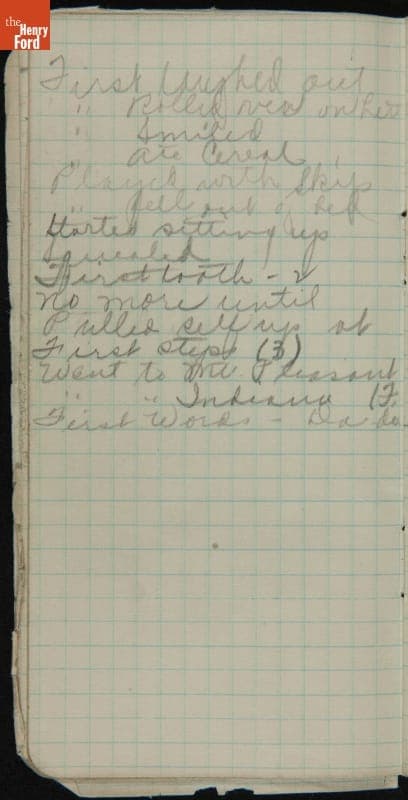 the
Henry
Ford
First laughed out
" Rolled over on her
" Smiled
" ate Cereal
Played with Skip
" fell out of bed
Started sitting up
Squealed
First tooth - 2
No more until
Pulled self up at
First steps (3)
Went to Mt. Pleasant
" " Indiana (F
First Words - Da da